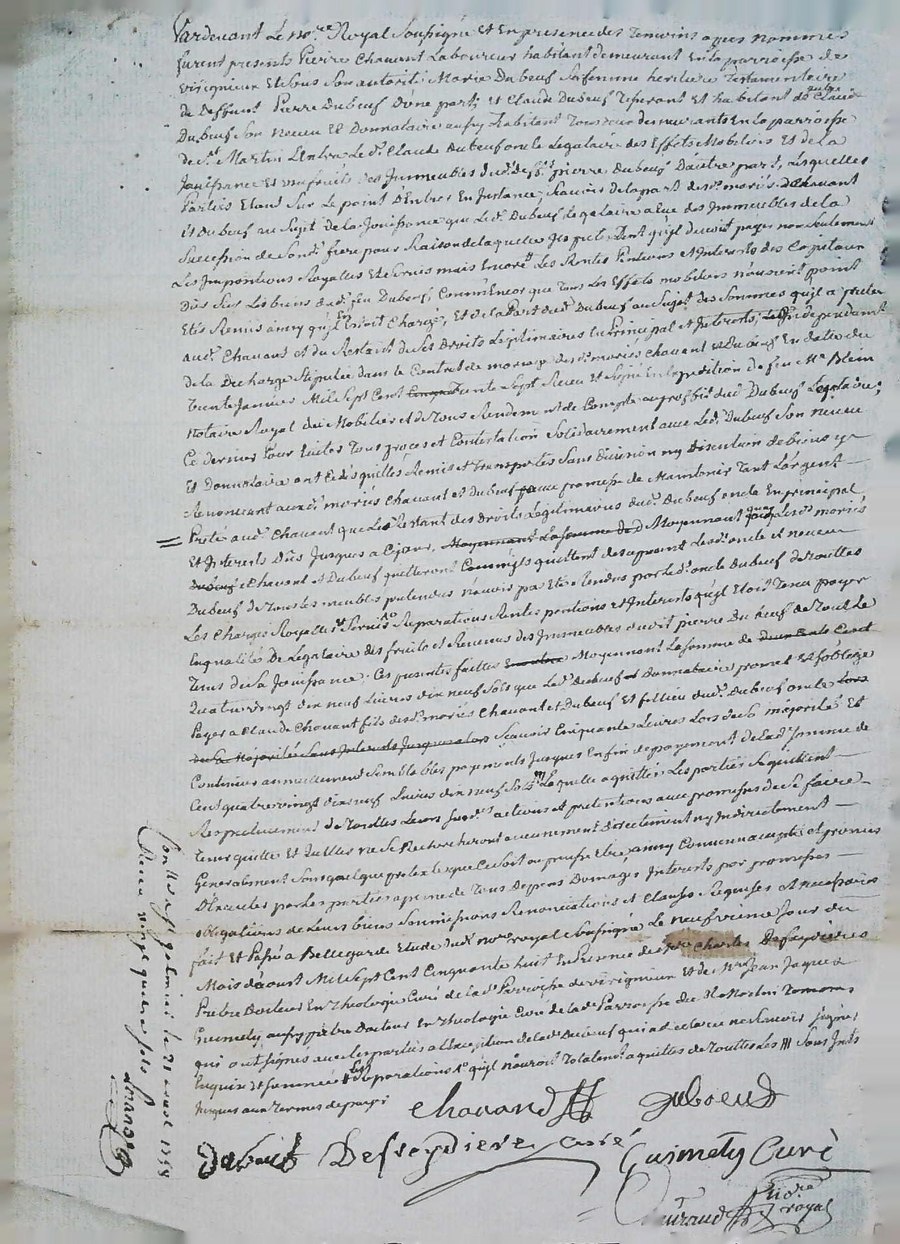 Pardevant Le no.re Royal Soussigné et En presence des Temoins apres nommes
furent presents Pierre Chavant Laboureur habitant demeurant En la parroisse de
virignieux Et sous son autorité Marie Dubœuf sa femme heritiere Testamentaire
de Deffunt Pierre Dubœuf D'une part, et Claude Dubœuf Tisserant Et habitant autre Claude
Dubœuf son neveu Et Donnataire aussy habitant Tous deux demeurants En la parroisse
de St Martin Lestra Led. Claude Dubœuf oncle Legataire des Effets Mobiliers Et de la
Jouissance Et usufruit des Immeubles dud. deff. pierre Dubœuf D'autre part, Lesquelles
Parties Etant sur Le point d'Entrer En Instance, scavoir de la part desd. mariés Chavant
et Dubœuf au sujet de la Jouissance que Led. Dubœuf Legataire a eue des Immeubles de la
succession de sond. frere pour raison de laquelle Ils pretendent qu'il devoit payer non seulement
Les Impositions Royalles Et servis mais Encore Les Rentes Pensions et Interets des Capitaux
Dûs sur Les biens dud. feu Dubœuf, Comm'Encor que Tous Les Effets mobiliers n'auroient point
Etés Remis ainsy qu'il En Etoit Chargé, Et de la Part dud. Dubœuf au sujet des sommes qu'il a pretés
aud. Chavant et du Restant de ses Droits Legitimaires En Principal et Interets, Independament
de la Decharge stipulée dans le Contrat de mariage desd. mariés Chavant et Dubœuf En datte du
Trente Janvier Mil sept Cent Trente sept Receu Et signé En Expedition de feu Me Blein
Notaire Royal des Mobiliers et de Tous Rendement de Compte au proffit dud. Dubœuf Legataire,
Ce dernier Pour Eviter Tous proces et Contestation solidairement avec Led. Dubœuf son neveu
Et Donnataire ont Cedés quittés Remis et Transportés sans Division ny discution de biens y
Renonceant auxd. mariés Chavant et Dubœuf avec promesse de Maintenir Tant L'argent
Preté aud. Chavant que Le Restant des Droits Legitimaires dud. Dubœuf oncle En principal
Et Interets Dûs Jusques a Ce Jour, Moyennant La somme de Moyennant quoy Lesd. mariés
Chavant et Dubœuf quittent des apresent Lesd. oncle et neveu
Dubœuf de Tous les meubles pretendus n'avoir pas Etés Rendus par led. oncle Dubœuf de Touttes
Les Charges Royalles, servis Reparations Rentes pentions et Interets qu'il Etoit Tenu payer
En qualité De Legataire des fruits et Revenus des Immeubles dudit pierre Dubœuf de Tout Le
Tems de sa Jouissance. Ces presentes faittes Moyennant La somme de
Quatre vingt dix neuf Livres dix neuf sols que Led. Dubœuf Donnataire promet Et s'oblige
Payer a Claude Chavant fils desd. mariés Chavant et Dubœuf Et filleu dud. Dubœuf oncle
de sa Majorité sans Interets Jusques alors scavoir Cinquante Livres Lors de sa majorité Et
Continuer annuellement semblables payements Jusques Enfin de payement de lad. somme de
Cent quatre vingt dix neuf Livres dix neuf sols Laquelle acquittée Les parties se quittent
Respectivement de Touttes Leurs susd. actions et pretentions avec promesses de se faire
Tenir quitte Et quelles ne se Rechercheront aucunement directement ny Indirectement
Generalement sous quelque pretexte que Ce soit ou puisse Etre, ainsy Convenu accepté et promis
D'Executer par les parties a peine de Tous Depens Domages Interets par promesses
obligations de Leurs biens soumissions Renonciations et Clauses Requises et necessaires
fait Et Passé a Bellegarde Etude dud. no.re royal soussigné Le neufvieme Jour du
Mois d'aoust Mil sept Cent Cinquante huit En Presence de Mre Charles Desseydieres
Pretre Docteur En Theologie Curé de lad. Parroisse de virignieux Et de Mre Jean Jacques
Guimety aussy pretre Docteur En Theologie Curé de lad. Parroisse de St Martin
qui ont signés avec Les parties a l'Exception de lad. Dubœuf qui a declaré ne scavoir signer
Enquise et sommée
Jusques aux Termes de payer
Chavand
Duboeuf
Duboeuf
Desseydiere curé
Guimety Curé
no.re royal
Con.lé a St galmier le 21 aoust 1758
Receu vingt quatre sols